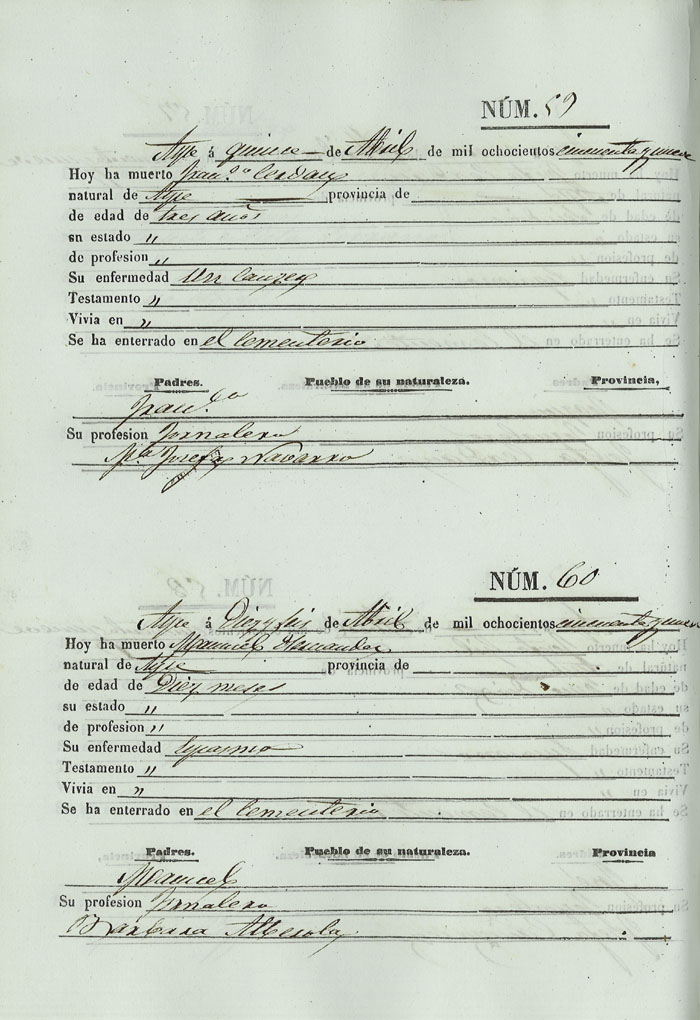 NÚM. 59
Aspe á quince de Abril de mil ochocientos cincuenta y nueve
Hoy ha muerto Fran.co Cerdan
natural de Aspe provincia de
de edad de tres años
sn estado "
de profesion "
Su enfermedad Un Canzer
Testamento "
Vivia en "
Se ha enterrado en el Cementerio
Padres. Pueblo de su naturaleza. Provincia,
Fran.co
Su profesion Jornalero
M.a Josefa Navarro
NÚM. 60
Aspe á Diez y seis de Abril de mil ochocientos cincuenta y nueve
Hoy ha muerto Manuel Hernandez
natural de Aspe provincia de
de edad de Diez meses
su estado "
de profesion "
Su enfermedad Espasmo
Testamento "
Vivia en "
Se ha enterrado en el Cementerio
Padres. Pueblo de su naturaleza. Provincia
Manuel
Su profesion Jornalero
Barbara Alberola